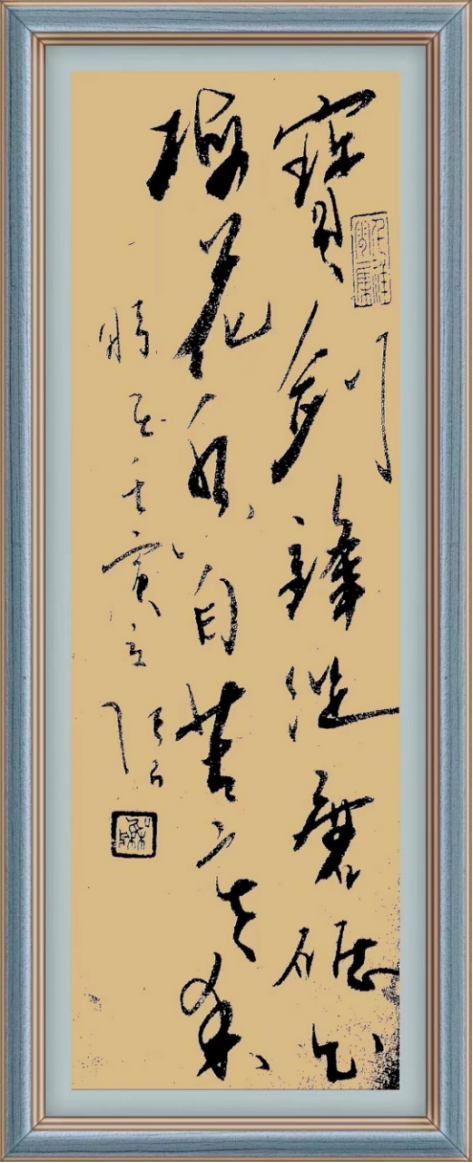 寶劍鋒從磨礪出
梅花香自苦寒來
時在壬寅